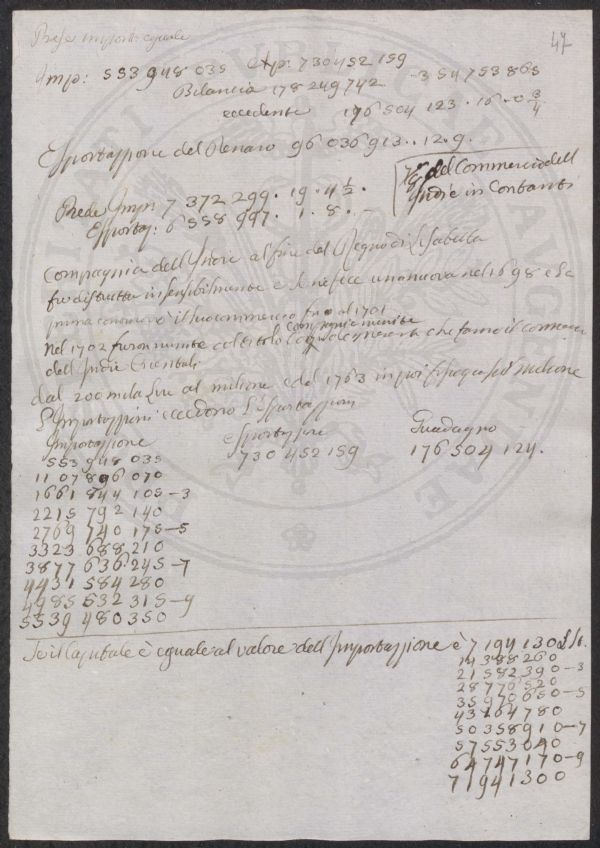 Prese importo eguale
47
Imp: 553 948 035 Exp: 730 452 159
Bilancia 178 249 742 354 753 865
eccedente 176 504 123 . 16 . 0 3/4
Esportazione del Denaro 96 036 913 .. 12 . 9.
del Commercio dell
Indie in Contanti
Prede Imp: 7 372 299 . 19 . 4 1/2 .
Esportaz: 6 558 997 . 1 . 8 . -
Compagnia dell'Indie al fine del Regno di Isabella
fu distrutta insensibilmente e se ne fece una nuova nel 1698 e la
prima il suo commercio fino al 1701
Nel 1702 furon riunite col titolo Compagnie riunite che fanno il commercio
dell Indie Orientali
dal 200 mila Lire al milione e dal 1763 in poi milione
L'Importazzioni eccedono l'Esportazzioni
Importazione
esportazione
Guadagno
553 948 035
730 452 159
176 504 124.
1107 896 070
1661 844 105 - 3
2215 792 140
2769 740 175 - 5
3323 688 210
3877 636 245 - 7
4431 584 280
4985 532 315 - 9
5539 480 350
Se il Capitale è eguale al valore dell'Importazzione è 7 194 130 L St.
14 388 260
21 582 390 - 3
28 776 520
35 970 650 - 5
43 164 780
50 358 910 - 7
57 553 040
64 747 170 - 9
71 941 300